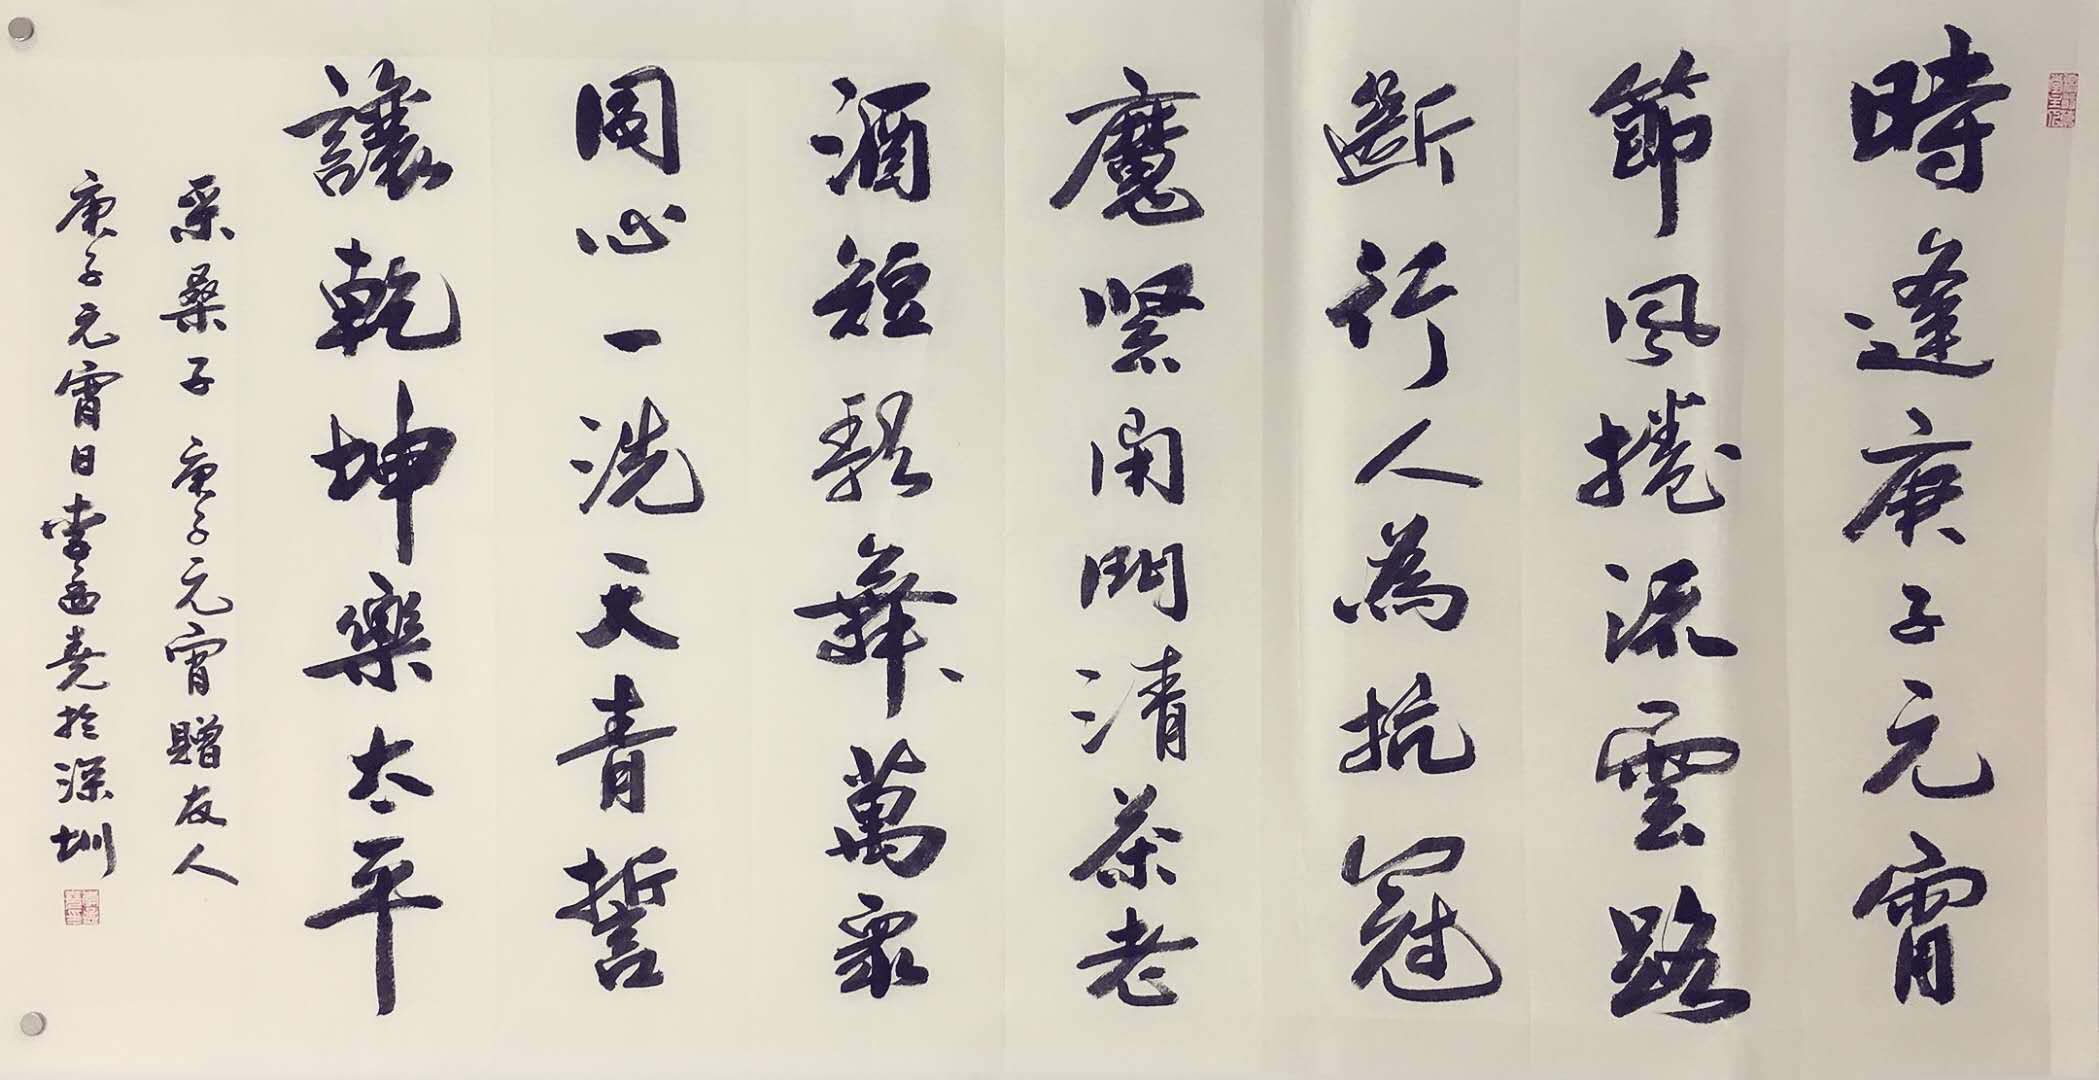 時逢庚子元宵
節風捲流雲路
斷行人為抗冠
魔緊閉門清茶老
酒短歌舞萬眾
同心一洗天青誓
讓乾坤樂太平
采桑子庚子元宵贈友人
庚子元宵日李西堯於深圳